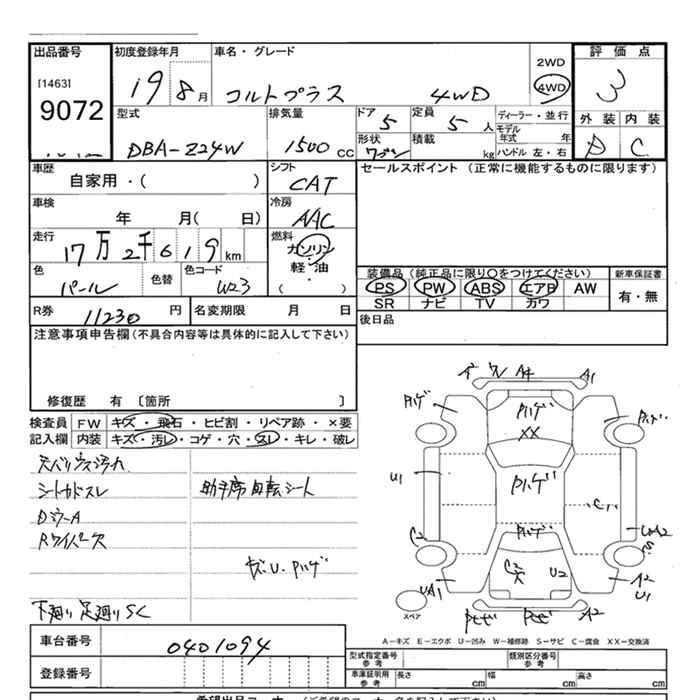 出品番号 初度登録年月 車名・グレード 2WD 4WD 評価点
[1463] 9072 19 8月 コルトプラス 4WD 3
型式 排気量 ドア 定員 ディーラー・並行 外装 内装
DBA-Z24W 1500 CC 5 5人 モデル年式 年 A C
形状 ワゴン 積載 kg ハンドル 左・右
車歴 シフト セールスポイント (正常に機能するものに限ります)
自家用・( ) CAT
車検 冷房
年 月( 日) AAC
走行 燃料
17万2千619km ガソリン
軽・油
( ・ )
色 色替 色コード
パール W23
装備品(純正品に限り○をつけてください) 新車保証書
PS PW ABS エアB AW 有・無
SR ナビ TV カワ
R券 11230円 名変期限 月 日
後日品
注意事項申告欄(不具合内容等は具体的に記入して下さい)
修復歴 有 〔箇所 〕
検査員 FW キズ・飛石・ヒビ割・リペア跡・×要
記入欄 内装 キズ・汚レ・コゲ・穴・スレ・キレ・破レ
天バリウス汚れ
シートカドスレ
助手席自転シート
DミラーA
Rワイパー欠
下廻り足廻りSC
A2 ワレ A4 A1
ハゲ
XX
ハゲ
U1
ハゲ
C2 U2
UA1 A2
U1
A2
スペア
A-キズ E-エクボ U-凹み W-補修跡 S-サビ C-腐食 XX-交換済
車台番号 0401094
型式指定番号 参考 類別区分番号 参考
登録番号
車庫証明用 参考 長さ cm 幅 cm 高さ cm